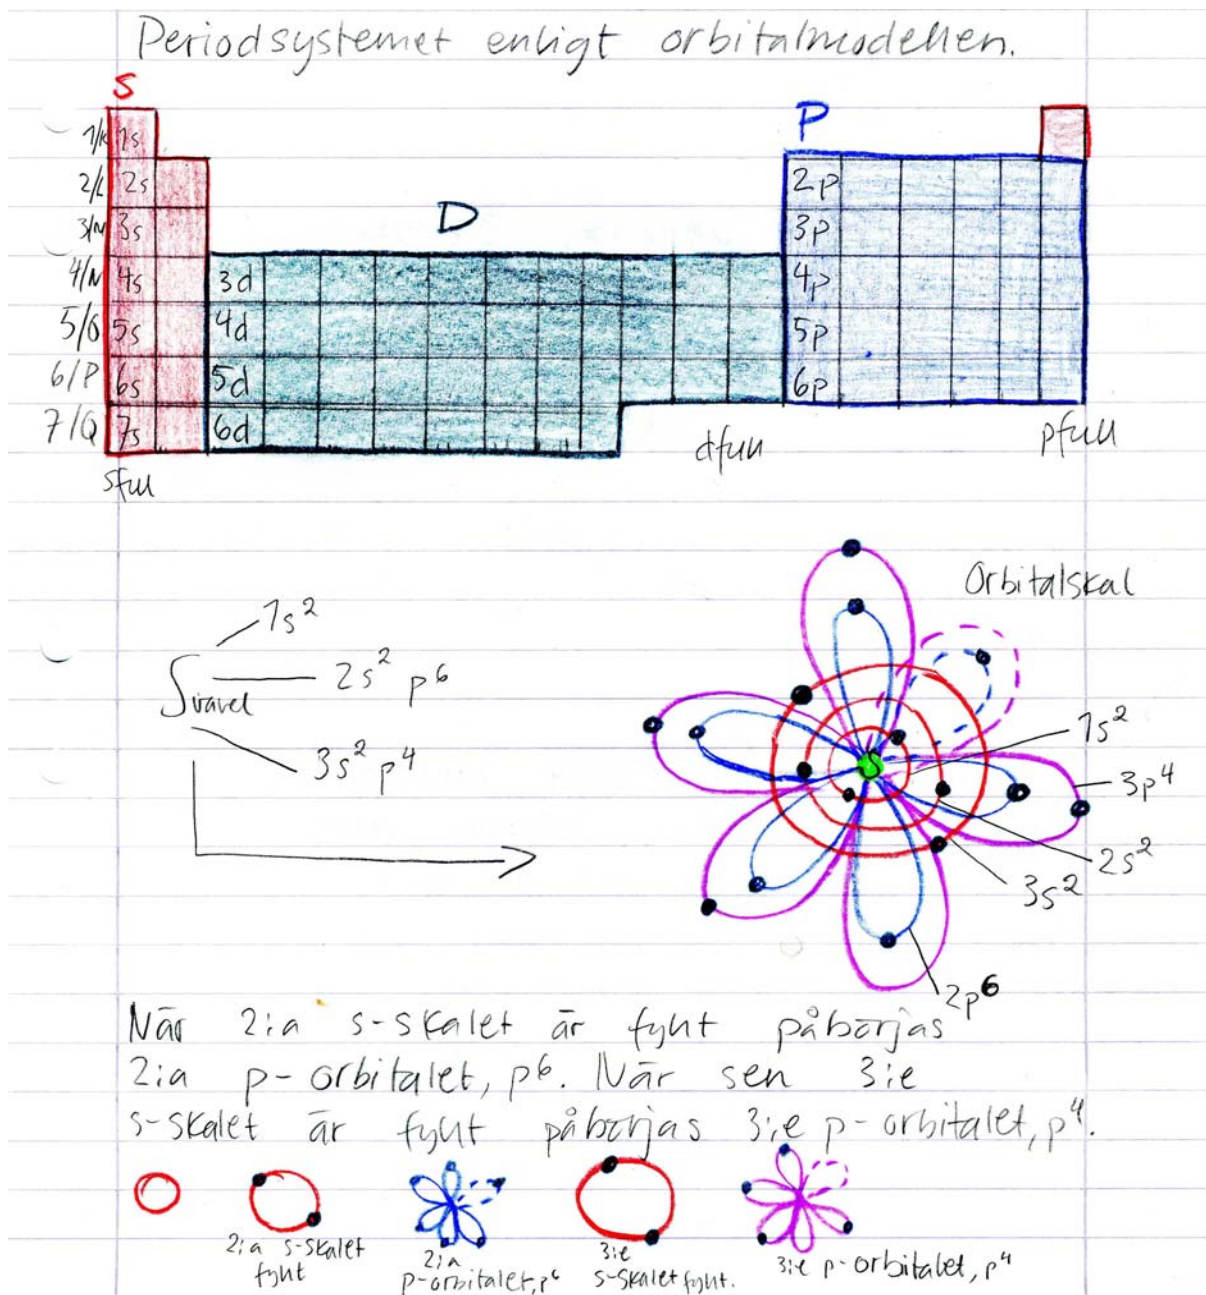 Periodsystemet enligt orbitalmodellen.
S
P
D
1/K 1s
2/L 2s 2p
3/M 3s 3p
4/N 4s 3d 4p
5/O 5s 4d 5p
6/P 6s 5d 6p
7/Q 7s 6d
sfull
dfull
pfull
Orbitalskal
1s²
Svavel
2s² p⁶
3s² p⁴
S
1s²
3p⁴
2s²
3s²
2p⁶
När 2:a s-skalet är fyllt påbörjas
2:a p-orbitalet, p⁶. När sen 3:e
s-skalet är fyllt påbörjas 3:e p-orbitalet, p⁴.
2:a s-skalet
fyllt
2:a
p-orbitalet, p⁶
3:e
s-skalet fyllt.
3:e p-orbitalet, p⁴